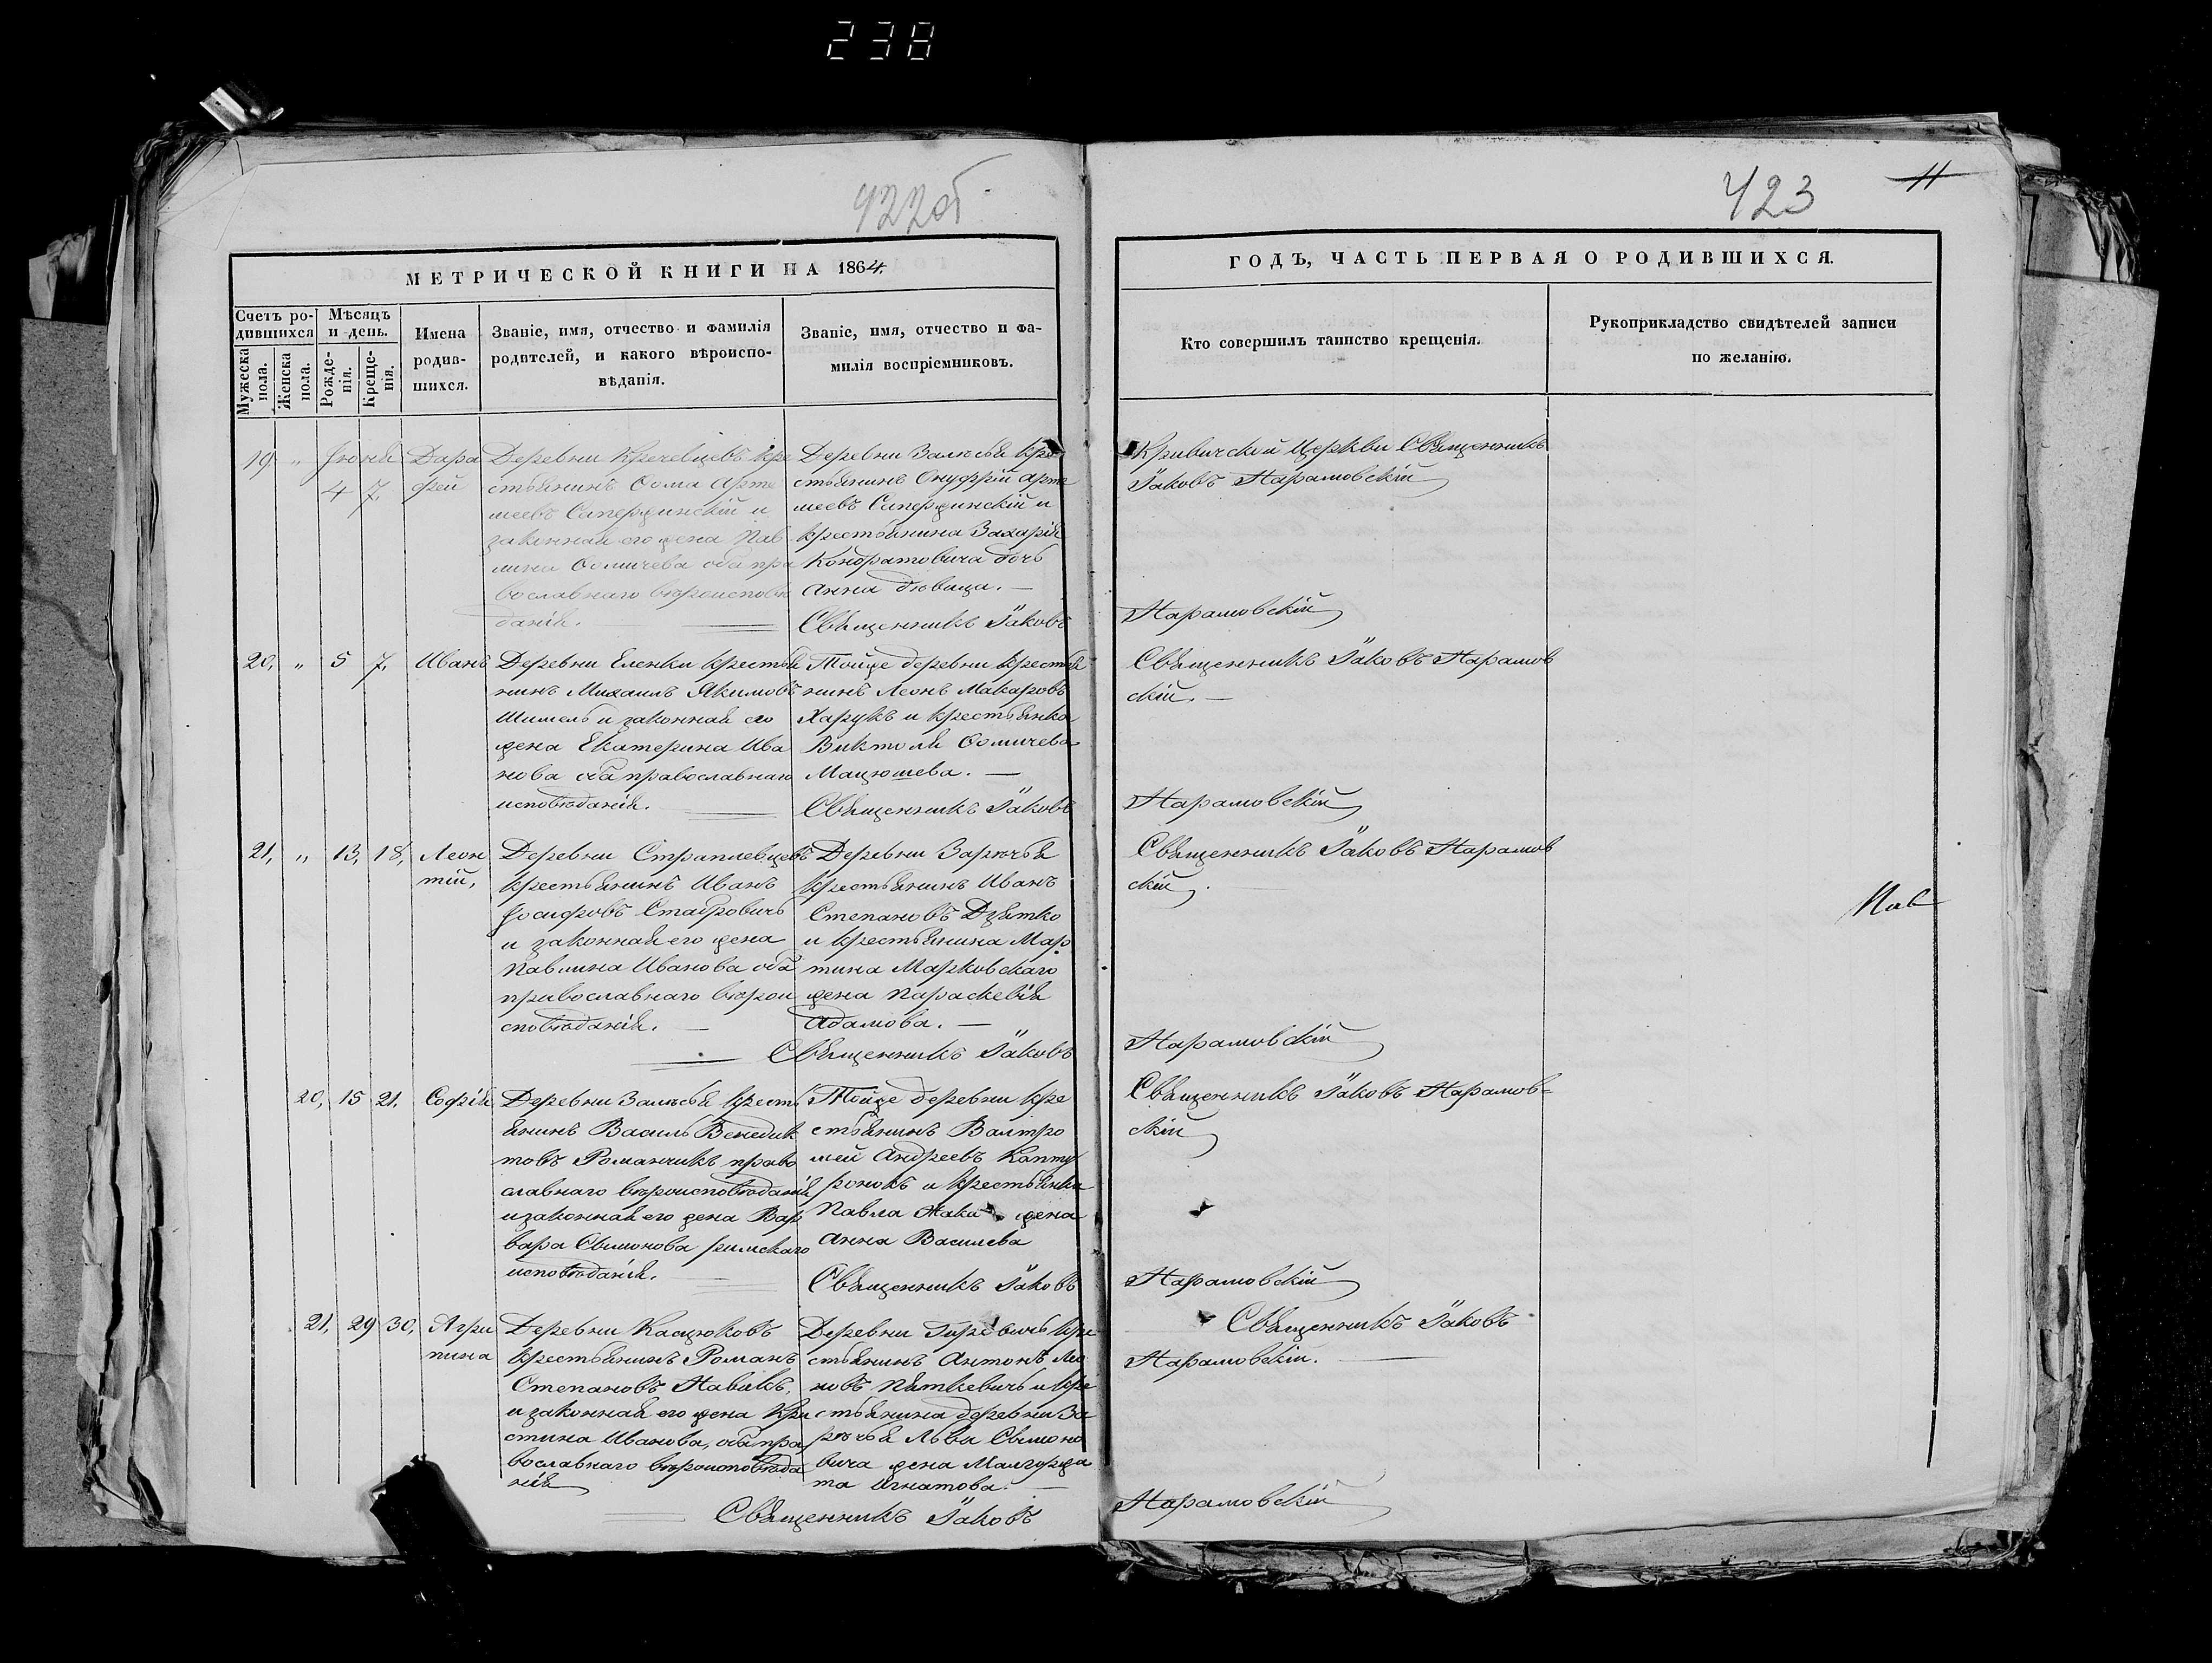 238
422об
423
11
МЕТРИЧЕСКОЙ КНИГИ НА 1864.
Счетъ ро-
дившихся
Мѣсяцъ
и день.
Мужеска
пола.
Женска
пола.
Рожде-
нія.
Креще-
нія.
Имена
родив-
шихся.
Званіе, имя, отчество и фамилія
родителей, и какого вѣроиспо-
вѣданія.
Званіе, имя, отчество и фа-
милія воспріемниковъ.
ГОДЪ, ЧАСТЬ ПЕРВАЯ О РОДИВШИХСЯ.
Кто совершилъ таинство крещенія.
Рукоприкладство свидѣтелей записи
по желанію.
19 " Іюня
4 7.
Дара
фей
Деревни Кречевцевъ кре
стьянинъ Ѳома Арте
меевъ и
законная его жена Пав
лина Ѳомичева оба пра
вославнаго вѣроисповѣ
данія.
Деревни Залѣсья кре
стьянинъ Онуфрій Арте
меевъ и
крестьянина Захарія
Кондратовича дочь
Анна дѣвица. —
Священникъ Іаковъ
Кривичской Церкви Священникъ
Іаковъ Нарамовскій
Нарамовскій
20, " 5 7.
Иванъ
Деревни Еленки крестья
нинъ Михаилъ Якимовъ
Шимель и законная его
жена Екатерина Ива
нова оба православнаго
исповѣданія.
Тойже деревни крестья
нинъ Леонъ Макаровъ
Харукъ и крестьянка
Ѳомичева
Мацюшева. —
Священникъ Іаковъ
Священникъ Іаковъ Нарамов
скій. —
Нарамовскій
21, " 13, 18,
Леон
тій,
Деревни Страплевцовъ
крестьянинъ Иванъ
Іосифовъ Стабровичъ
и законная его жена
Павлина Иванова оба
православнаго вѣрои
сповѣданія. —
Деревни Зарѣчья
крестьянинъ Иванъ
Степановъ Дзятко
и крестьянина Мар
тина Марковскаго
жена Параскевія
Адамова. —
Священникъ Іаковъ
Священникъ Іаковъ Нарамов
скій.
Нарамовскій
20, 15 21.
Софія
Деревни Залѣсья кресть
янинъ Василь Венедик
товъ Романчикъ право
славнаго вѣроисповѣданія
и законная его жена Вар
вара Свимонова римскаго
исповѣданія.
Тойже деревни кре
стьянинъ Валтро
мей Андреевъ Капту
ронокъ и крестьянки
Павла жена
Анна Василева
Священникъ Іаковъ
Священникъ Іаковъ Нарамов=
скій
Нарамовскій
21, 29 30,
Агри
пина
Деревни Касцюковъ
крестьянинъ Романъ
Степановъ Навакъ,
и законная его жена Кри
стина Иванова, оба пра
вославнаго вѣроисповѣда
нія
Деревни кре
стьянинъ Антонъ Лео
новъ Пяткевичъ и кре
стьянина деревни За
рѣчья Льва Свимоно
вича жена Малгоржа
та Игнатова. —
Священникъ Іаковъ
Священникъ Іаковъ
Нарамовскій. —
Нарамовскій